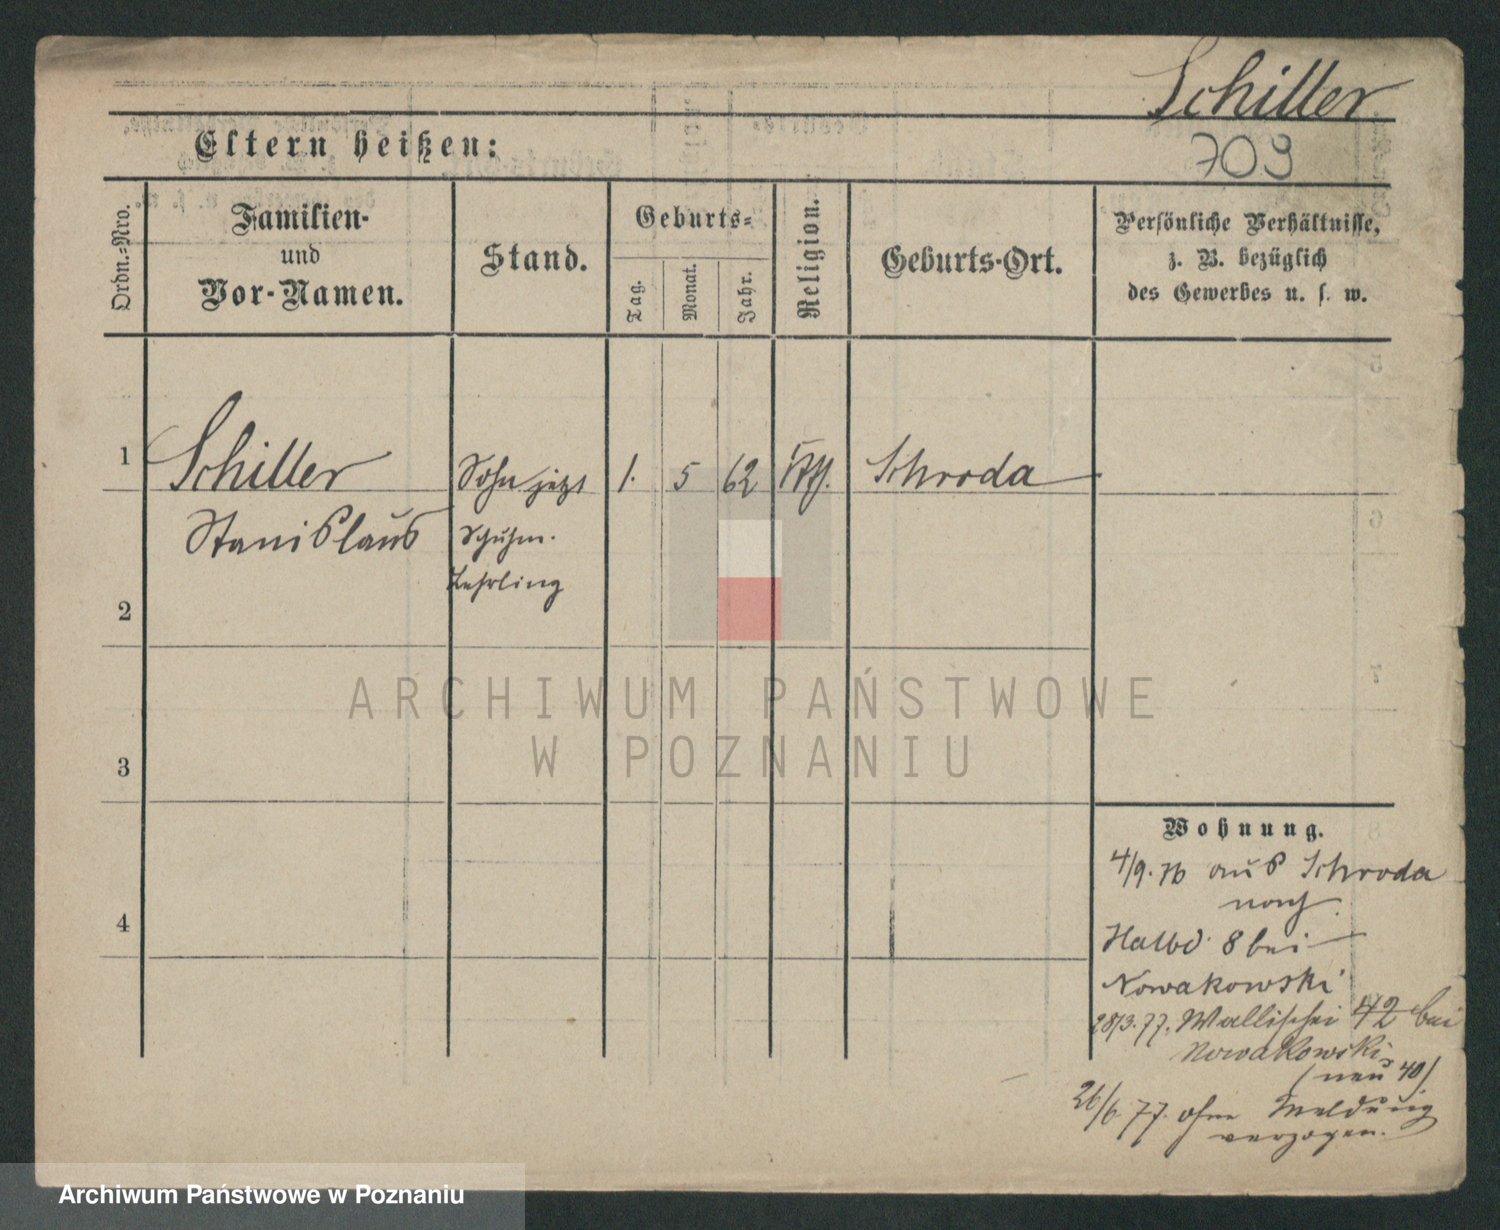 Schiller
709
Eltern heißen:
Ordn.=Nro.
Familien-
und
Vor-Namen.
Stand.
Geburts=
Tag.
Monat.
Jahr.
Religion.
Geburts-Ort.
Persönliche Verhältnisse,
z. B. bezüglich
des Gewerbes u. s. w.
1
Schiller
Sohn jetzt
1.
5
62
Kth.
Schroda
Stanislaus
Schuhm.
Lehrling
2
3
4
Wohnung.
4/9.76 aus Schroda
nach
Halbd. 8 bei
Nowakowski
28/3.77. Wallischei 42 bei
Nowakowski
(neu 40)
26/6.77. ohne Meldung
verzogen.
ARCHIWUM PAŃSTWOWE
W POZNANIU
Archiwum Państwowe w Poznaniu